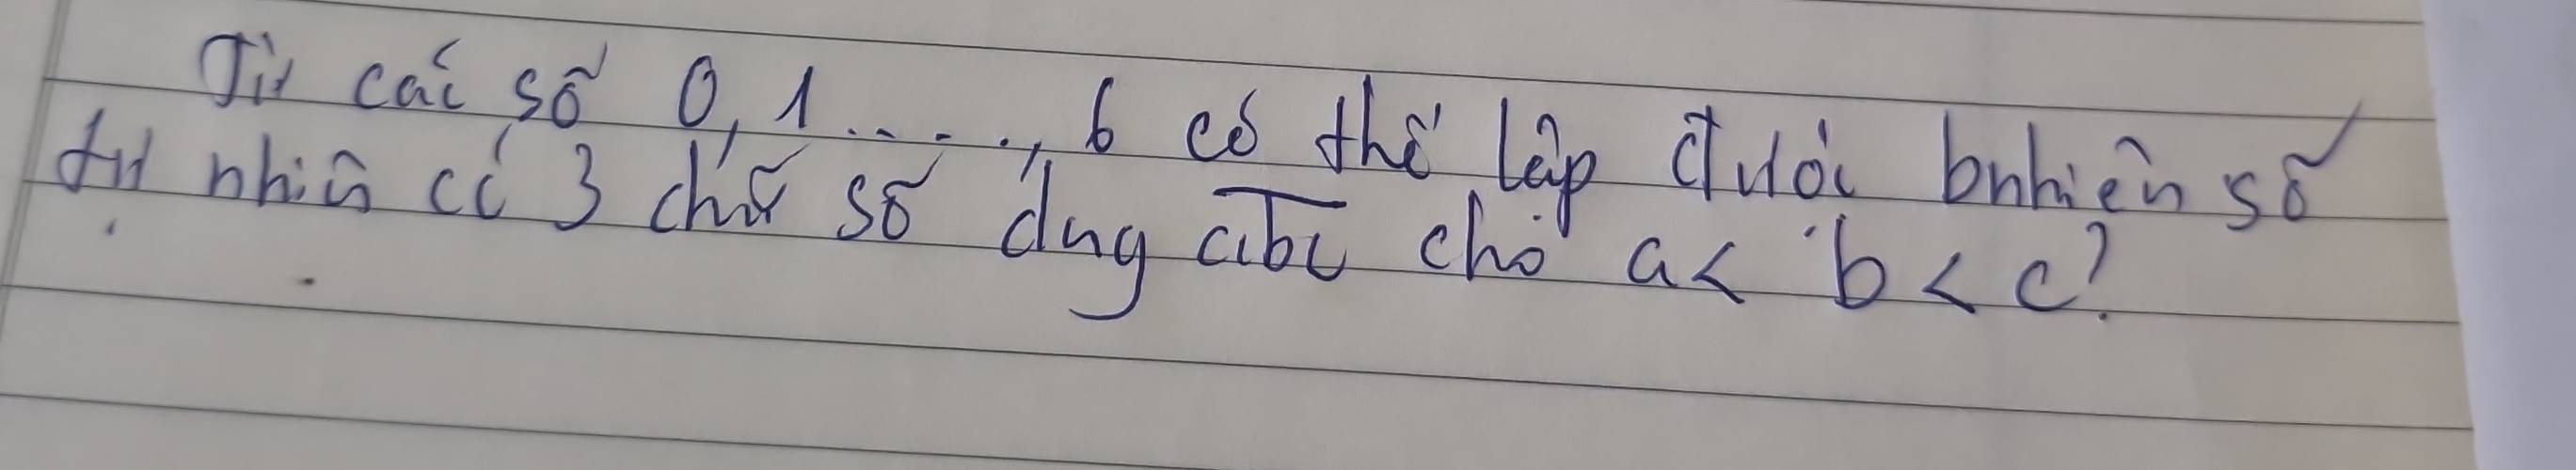 Từ các số 0, 1 ...., 6 có thể lập được bnhiên số
tự nhiên có 3 chữ số dạng abc cho a < b < c?